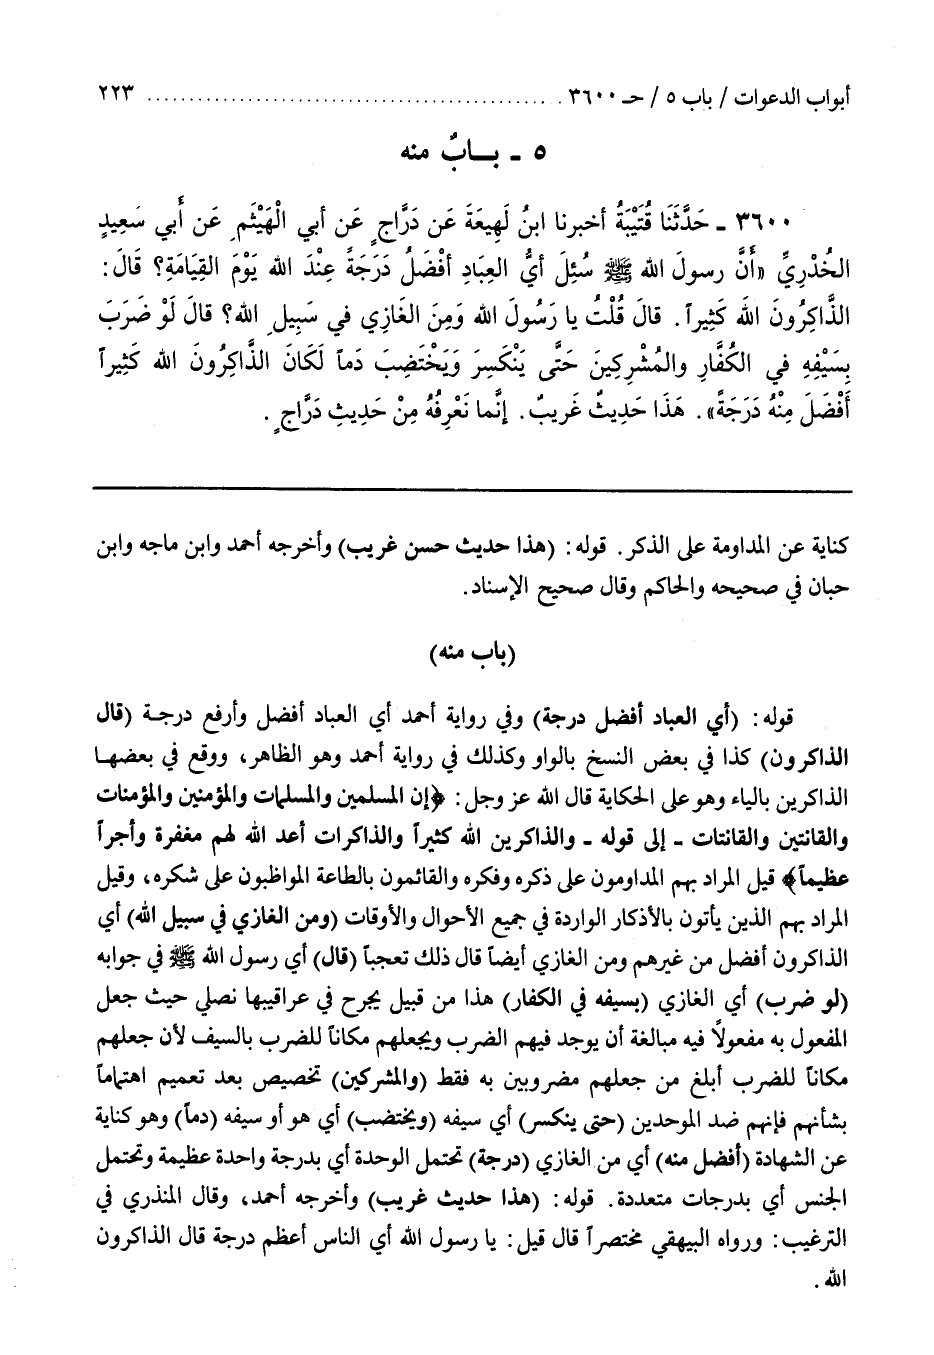 أبواب الدعوات / باب ٥ / حـ ٣٦٠٠ ................................................ ٢٢٣
٥ - بــابٌ منه
٣٦٠٠ - حَدَّثَنَا قُتَيْبَةُ أخبرنا ابنُ لَهِيعَةَ عَن دَرَّاجٍ عَن أبي الْهَيْثَمِ عَن أَبي سَعِيدٍ
الخُدْرِيِّ «أَنَّ رسولَ الله ﷺ سُئِلَ أيُّ العِبَادِ أفْضَلُ دَرَجَةً عِنْدَ الله يَوْمَ القِيَامَةِ؟ قَالَ:
الذَّاكِرُونَ اللهَ كَثِيراً. قالَ قُلْتُ يا رَسُولَ الله وَمِنَ الغَازِي في سَبِيلِ الله؟ قالَ لَوْ ضَرَبَ
بِسَيْفِهِ في الكُفَّارِ والمُشْرِكِينَ حَتَّى يَنْكَسِرَ وَيَخْتَضِبَ دَماً لَكَانَ الذَّاكِرُونَ الله كَثِيراً
أَفْضَلَ مِنْهُ دَرَجَةً». هَذَا حَدِيثٌ غَرِيبٌ. إنَّما نَعْرِفُهُ مِنْ حَدِيثِ دَرَّاجٍ.
كناية عن المداومة على الذكر. قوله: (هذا حديث حسن غريب) وأخرجه أحمد وابن ماجه وابن
حبان في صحيحه والحاكم وقال صحيح الإسناد.
(باب منه)
قوله: (أي العباد أفضل درجة) وفي رواية أحمد أي العباد أفضل وأرفع درجـة (قال
الذاكرون) كذا في بعض النسخ بالواو وكذلك في رواية أحمد وهو الظاهر، ووقع في بعضهـا
الذاكرين بالياء وهو على الحكاية قال الله عز وجل: ﴿إن المسلمين والمسلمات والمؤمنين والمؤمنات
والقانتين والقانتات - إلى قوله - والذاكرين الله كثيراً والذاكرات أعد الله لهم مغفرة وأجراً
عظيماً﴾ قيل المراد بهم المداومون على ذكره وفكره والقائمون بالطاعة المواظبون على شكره، وقيل
المراد بهم الذين يأتون بالأذكار الواردة في جميع الأحوال والأوقات (ومن الغازي في سبيل الله) أي
الذاكرون أفضل من غيرهم ومن الغازي أيضاً قال ذلك تعجباً (قال) أي رسول الله ﷺ في جوابه
(لو ضرب) أي الغازي (بسيفه في الكفار) هذا من قبيل يجرح في عراقيبها نصلي حيث جعل
المفعول به مفعولاً فيه مبالغة أن يوجد فيهم الضرب ويجعلهم مكاناً للضرب بالسيف لأن جعلهم
مكاناً للضرب أبلغ من جعلهم مضروبين به فقط (والمشركين) تخصيص بعد تعميم اهتماماً
بشأنهم فإنهم ضد الموحدين (حتى ينكسر) أي سيفه (ويختضب) أي هو أو سيفه (دماً) وهو كناية
عن الشهادة (أفضل منه) أي من الغازي (درجة) تحتمل الوحدة أي بدرجة واحدة عظيمة وتحتمل
الجنس أي بدرجات متعددة. قوله: (هذا حديث غريب) وأخرجه أحمد، وقال المنذري في
الترغيب: ورواه البيهقي مختصراً قال قيل: يا رسول الله أي الناس أعظم درجة قال الذاكرون
الله.